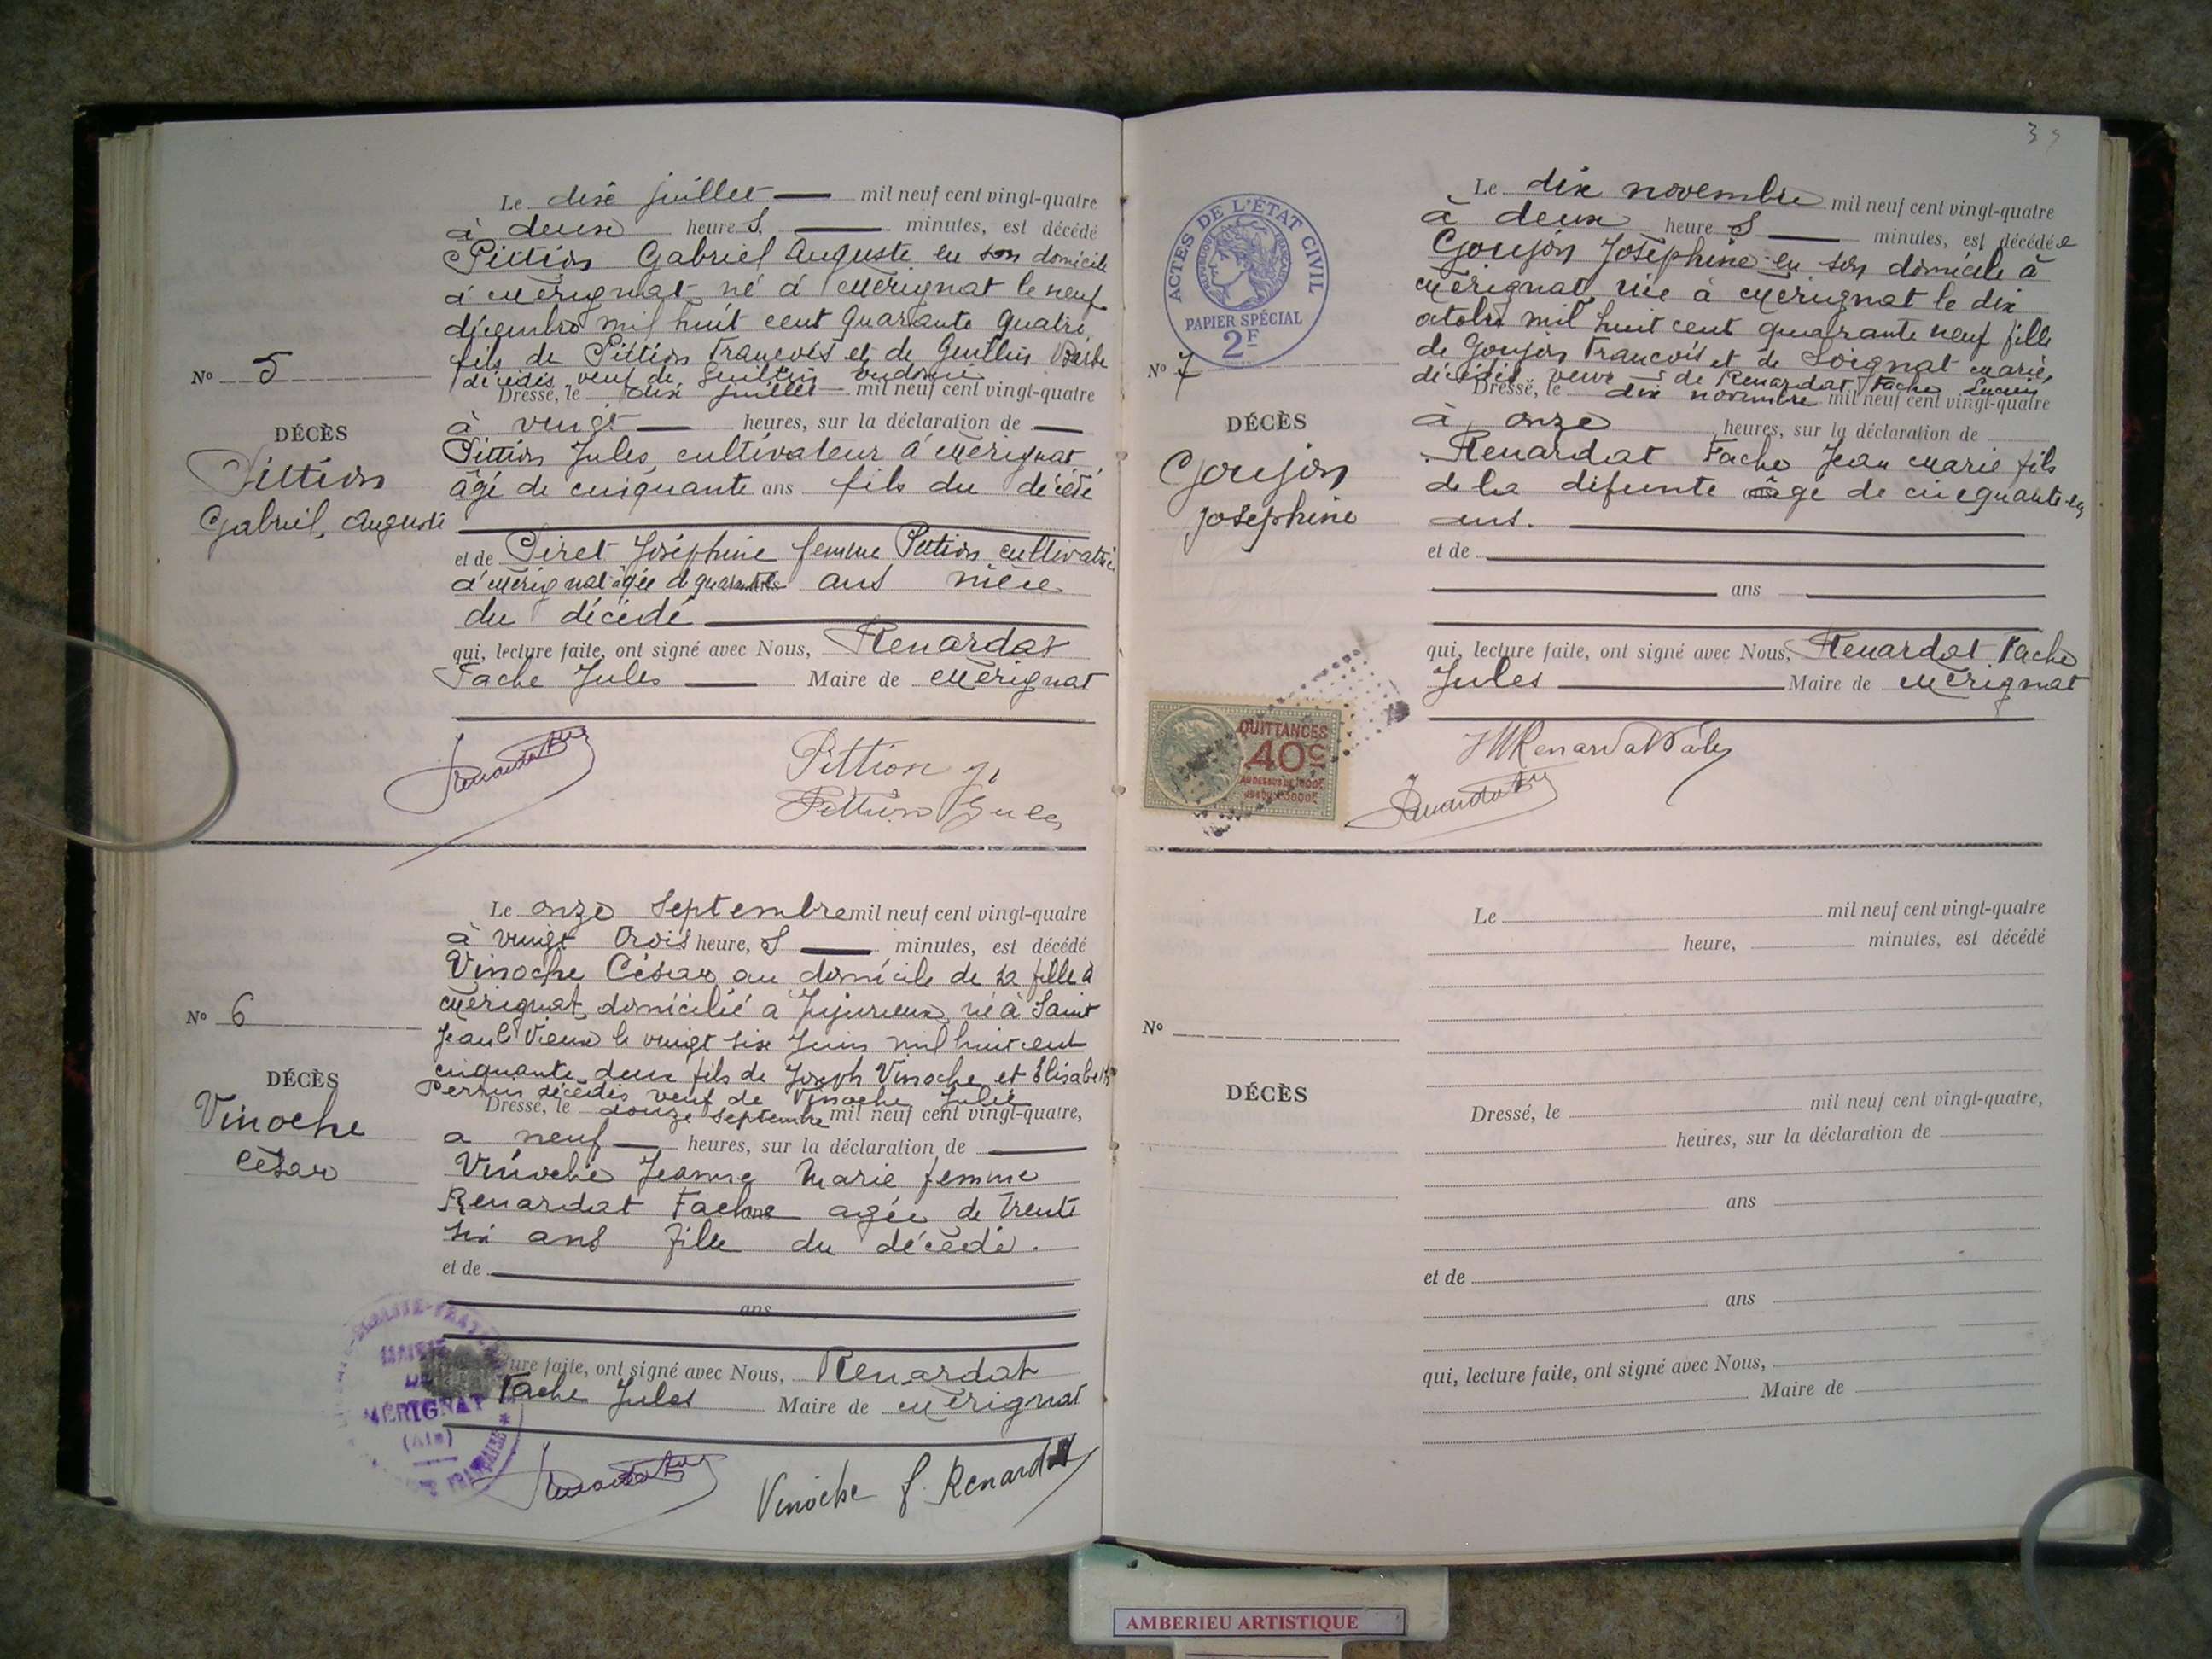 Le dix juillet mil neuf cent vingt-quatre
à deux heures, minutes, est décédé
Pittion Gabriel Auguste en son domicile
à Mérignat né à Mérignat le neuf
décembre mil huit cent quarante quatre
fils de Pittion François et de Guillin Barbe
décédés veuf de Guillin
Dressé, le dix juillet mil neuf cent vingt-quatre
à vingt heures, sur la déclaration de
Pittion Jules, cultivateur à Mérignat
âgé de cinquante ans fils du décédé
et de Piret Joséphine femme Pittion cultivatrice
à Mérignat âgée de quarante ans nièce
du décédé
qui, lecture faite, ont signé avec Nous, Renardat
Fache Jules Maire de Mérignat
No 5
DÉCÈS
Pittion
Gabriel, Auguste
Pittion J
Pittion Jules
Le onze Septembre mil neuf cent vingt-quatre
à vingt trois heures, minutes, est décédé
Vinoche César au domicile de sa fille à
Mérignat, domicilié à Jujurieux, né à Saint
Jean le Vieux le vingt six Juin mil huit cent
cinquante deux fils de Joseph Vinoche et Elisabeth
Perrin décédés veuf de Vinoche Julie
Dressé, le douze Septembre mil neuf cent vingt-quatre,
à neuf heures, sur la déclaration de
Vinoche Jeanne Marie femme
Renardat Fache agée de trente
six ans fille du décédé.
et de
ans
lecture faite, ont signé avec Nous, Renardat
Fache Jules Maire de Mérignat
No 6
DÉCÈS
Vinoche
César
MAIRIE
DE
MÉRIGNAT
(Ain)
Vinoche f. Renardat
39
ACTES DE L'ÉTAT CIVIL
PAPIER SPÉCIAL
2F
Le dix novembre mil neuf cent vingt-quatre
à deux heures minutes, est décédée
Goujon Joséphine en son domicile à
Mérignat, née à Mérignat le dix
octobre mil huit cent quarante neuf fille
de Goujon François et de Soignat Marie,
décédés veuve de Renardat Fache Lucien
Dressé, le dix novembre mil neuf cent vingt-quatre
à onze heures, sur la déclaration de
Renardat Fache Jean Marie fils
de la défunte âgé de cinquante-un
ans.
et de
ans
qui, lecture faite, ont signé avec Nous, Renardat Fache
Jules Maire de Mérignat
No 7
DÉCÈS
Goujon
Joséphine
QUITTANCES
40c
Le mil neuf cent vingt-quatre
heure, minutes, est décédé
No
DÉCÈS
Dressé, le mil neuf cent vingt-quatre,
heures, sur la déclaration de
ans
et de
ans
qui, lecture faite, ont signé avec Nous,
Maire de
AMBERIEU ARTISTIQUE